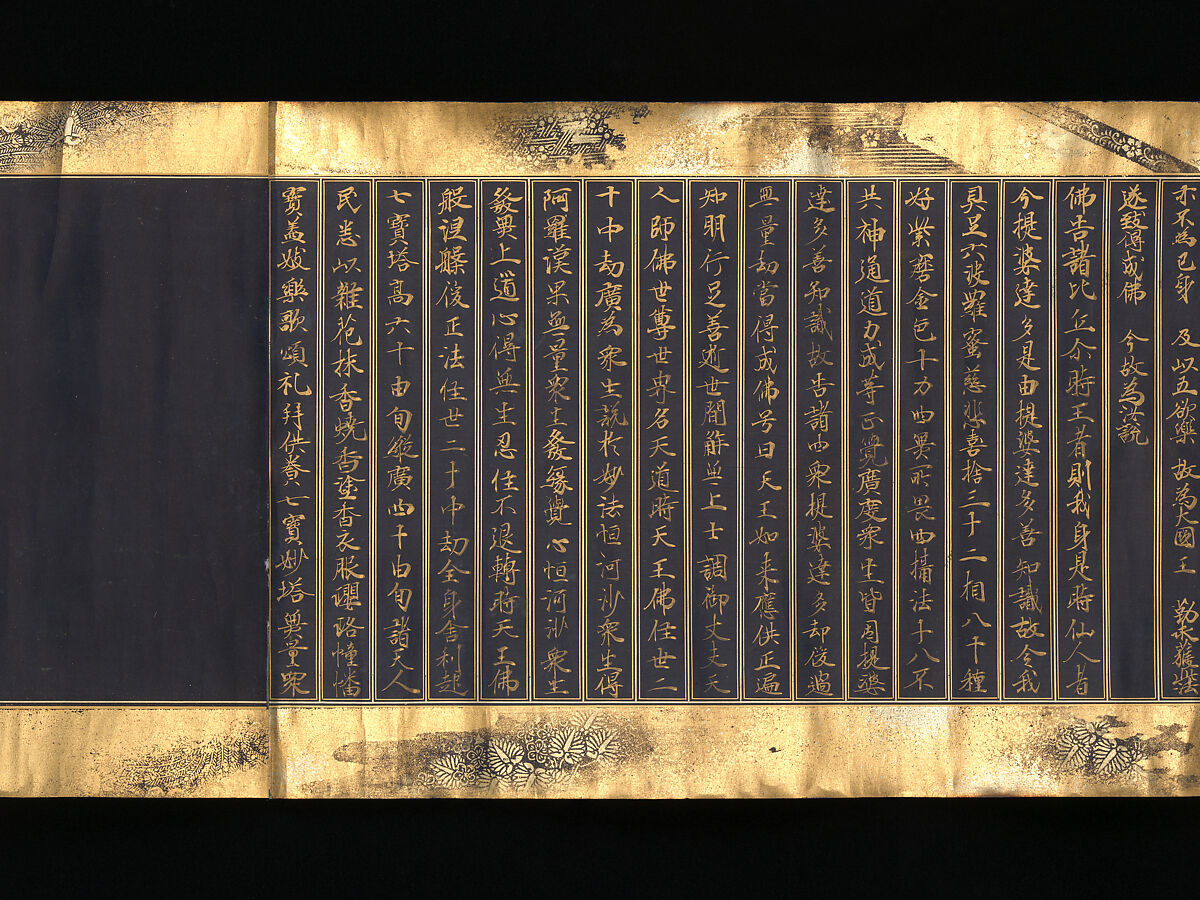 亦不為己身　及以五欲樂　故為大國王　勤求獲此法
遂致得成佛　今故為汝說
佛告諸比丘尒時王者則我身是時仙人者
今提婆達多是由提婆達多善知識故令我
具足六波羅蜜慈悲喜捨三十二相八十種
好紫磨金色十力四無所畏四攝法十八不
共神通道力成等正覺廣度衆生皆因提婆
達多善知識故告諸四衆提婆達多却後過
無量劫當得成佛号曰天王如来應供正遍
知明行足善逝世間解無上士調御丈夫天
人師佛世尊世界名天道時天王佛住世二
十中劫廣為衆生說於妙法恒河沙衆生得
阿羅漢果無量衆生發緣覺心恒河沙衆生
發無上道心得無生忍住不退轉時天王佛
般涅槃後正法住世二十中劫全身舍利起
七寶塔高六十由旬縱廣四十由旬諸天人
民悉以雜花抹香燒香塗香衣服瓔珞幢幡
寶蓋妓樂歌頌礼拜供養七寶妙塔無量衆